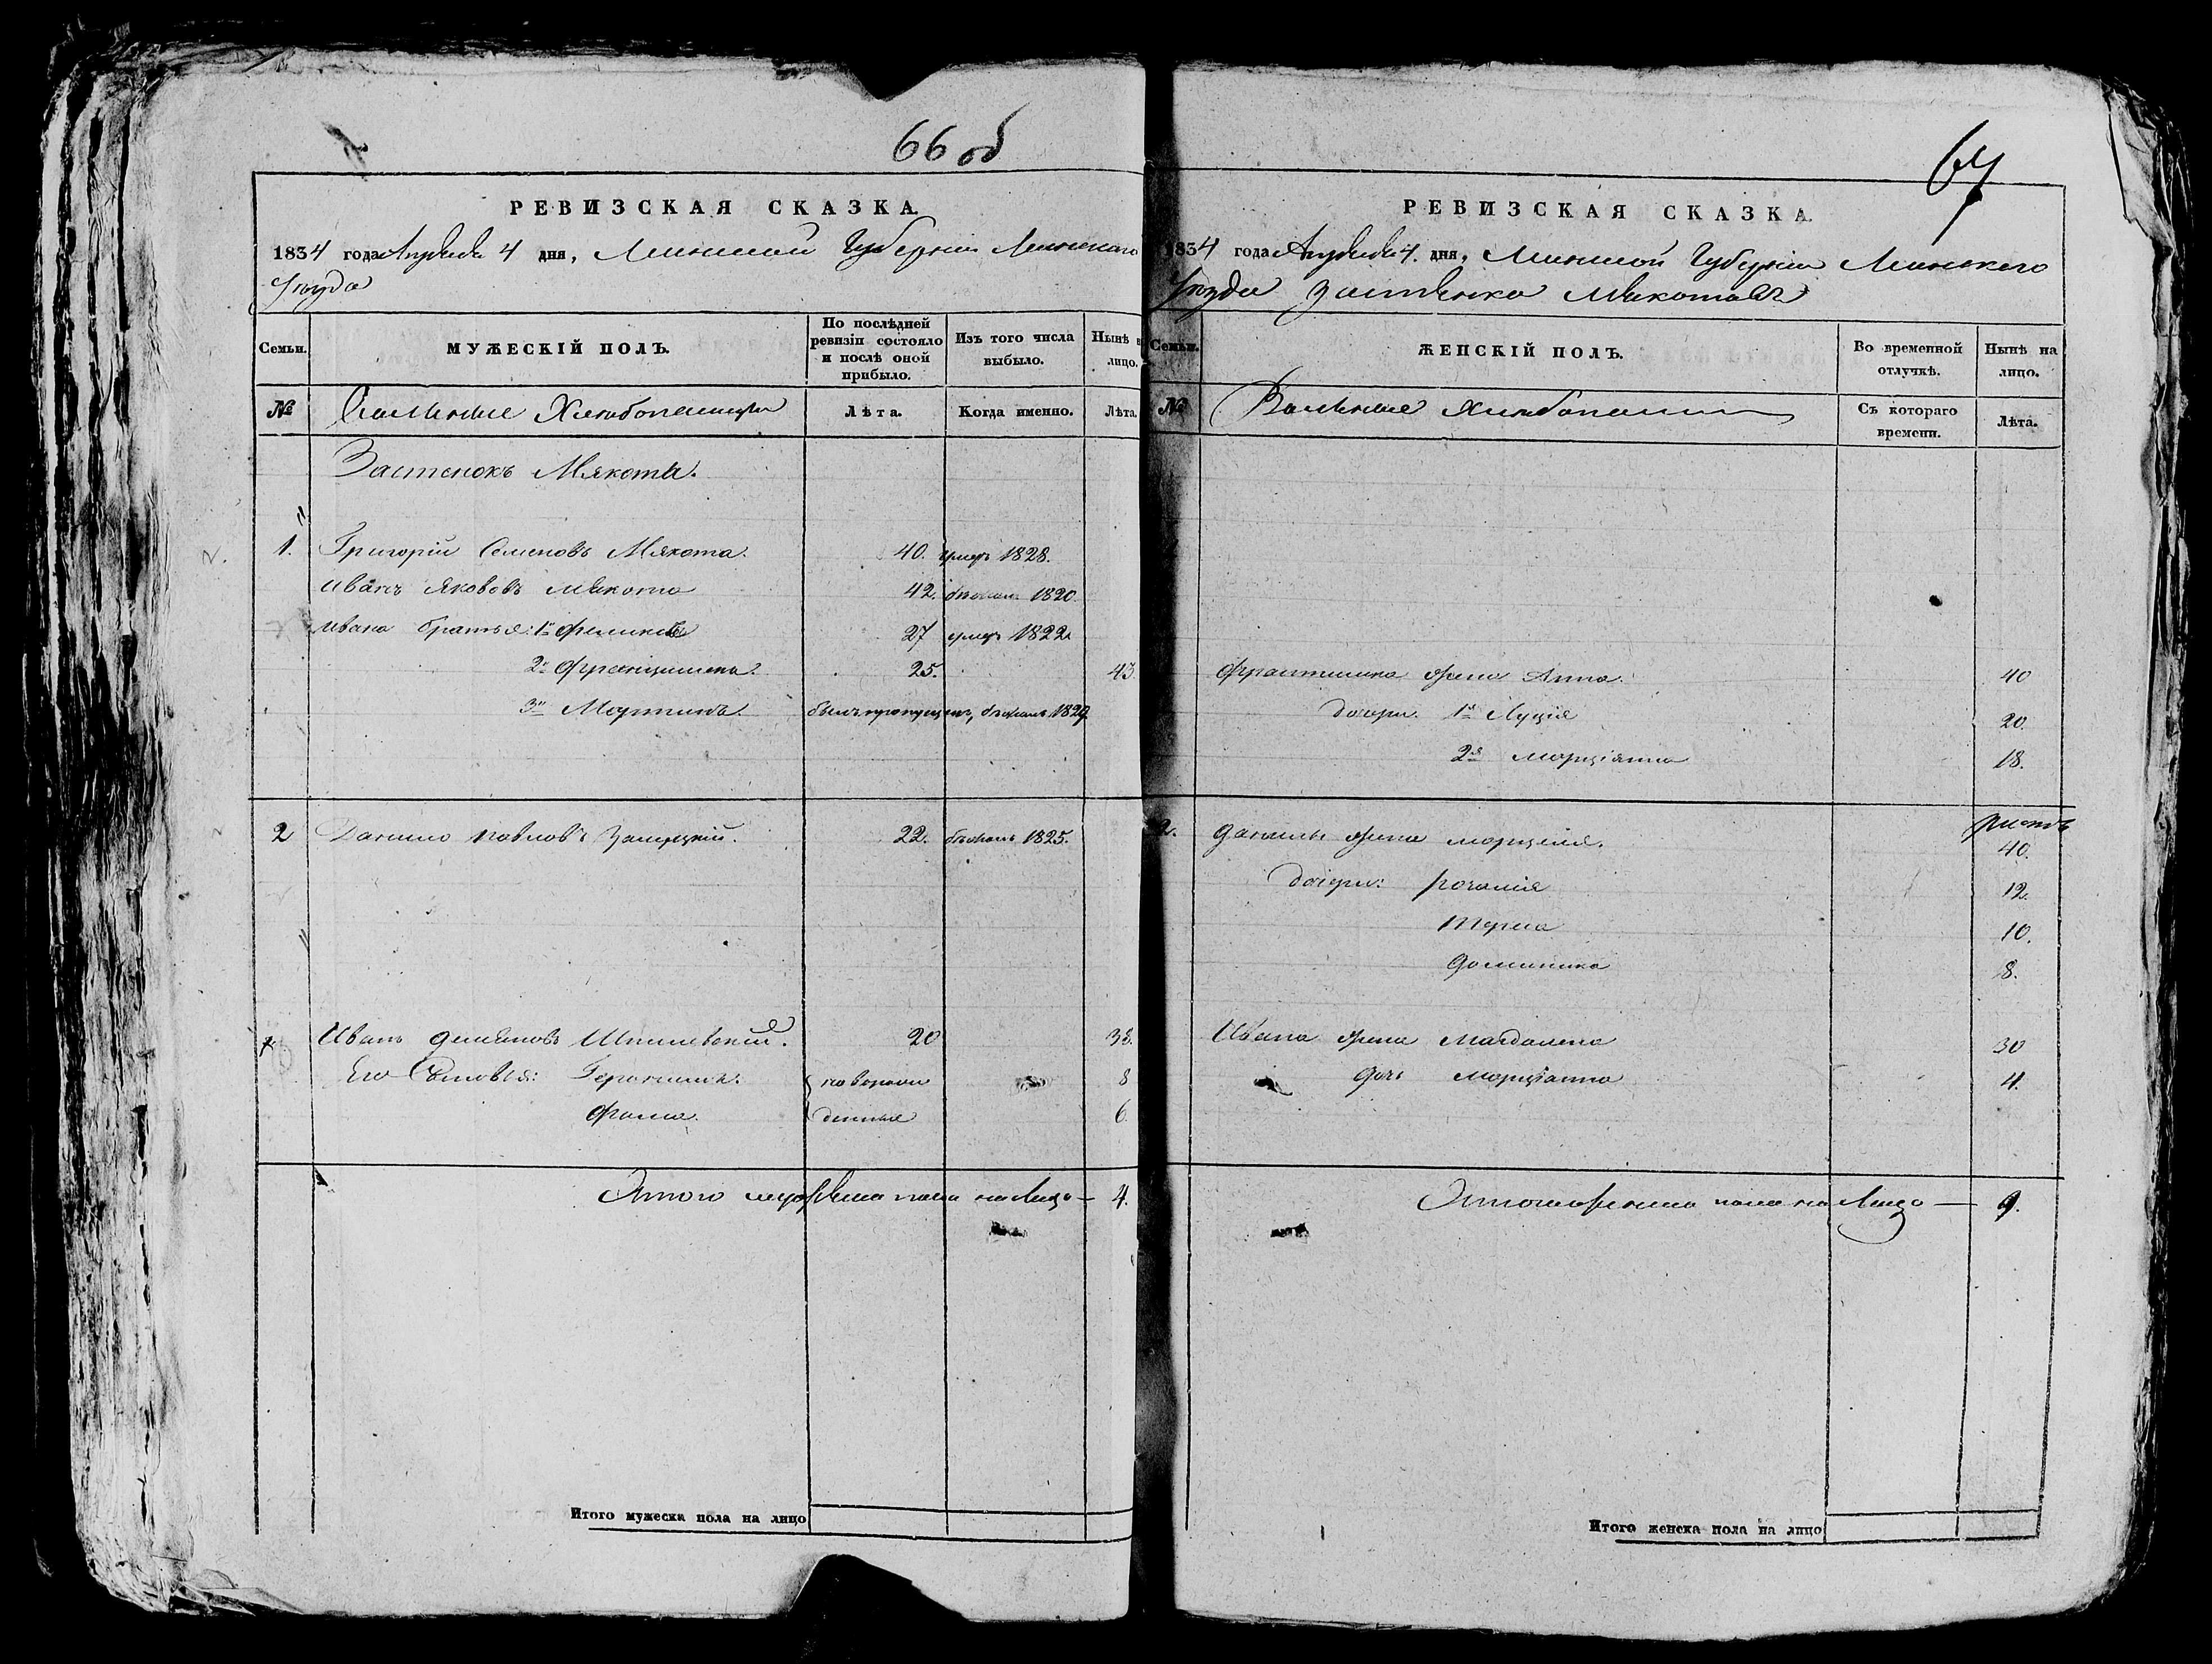 66 об
РЕВИЗСКАЯ СКАЗКА.
1834 года Апреля 4 дня, Минской Губерніи Минскаго
Уезда
Семьи.
МУЖЕСКІЙ ПОЛЪ.
По послѣдней ревизіи состояло и послѣ оной прибыло.
Изъ того числа выбыло.
Нынѣ
лицо.
№
Вольные Хлебопашцы
Лѣта.
Когда именно.
Лѣта.
Застенокъ Мякоты.
1. Григорій Семеновъ Мякота. 40. умеръ 1828.
Иванъ Якововъ Мякота 42. бежалъ 1820.
Ивана братья: 1й 27 умеръ 1822
2й Францишекъ. 25. 43
3й Мартинъ. былъ пропущенъ, бежалъ 1829.
2 Данило Павловъ 22. бежалъ 1825.
Иванъ Демяновъ Шпилевскій. 20 38.
Его Сыновья: Геронимъ. новорож 8
Фома. денные 6.
Итого мужеска пола на лицо — 4.
Итого мужеска пола на лицо
67
РЕВИЗСКАЯ СКАЗКА.
1834 года Апреля 4. дня, Минской Губерніи Минскаго
Уезда Застенка
Семьи.
ЖЕНСКІЙ ПОЛЪ.
Во временной отлучкѣ.
Нынѣ на лицо.
№
Вольные
Съ котораго времени.
Лѣта.
Францишка жена Анна. 40
дочери. 1я Луція 20.
2я Марціянна 18.
2. Данилы жена Марцеля. 40.
дочери: Розалія 12.
10.
Доминика 8.
Ивана жена Магдалена 30
Дочь Марціанна 4.
Итого женска пола на Лицо — 9.
Итого женска пола на лицо